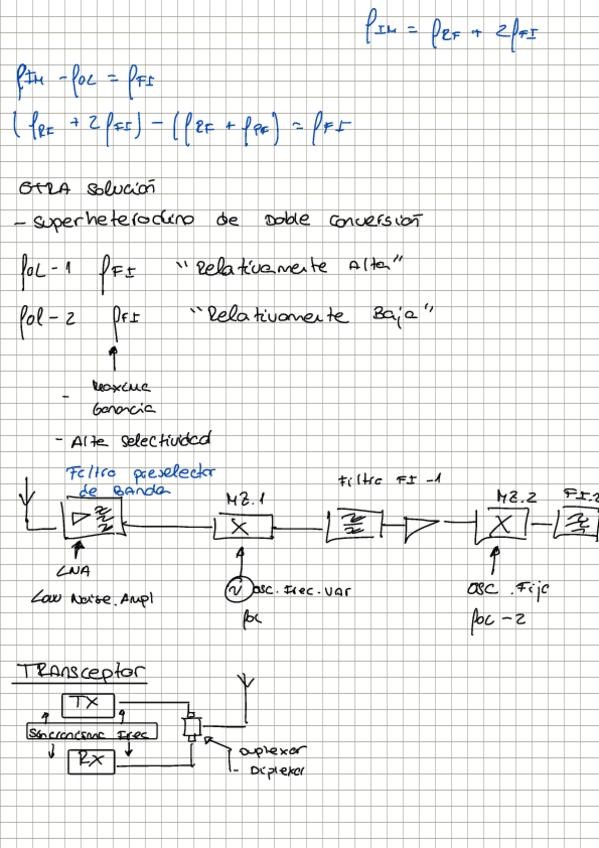 fIM = fRF + 2fFI
fIM - fOL = fFI
(fRF + 2fFI) - (fRF + fRF) = fFI
OTRA Solución
- superheterodino de Doble conversión
fOL-1 fFI "Relativamente Alta"
fOl-2 fFI "Relativamente Baja"
- Maxima
Ganancia
- Alta selectividad
Filtro preselector
de BANDA
MZ.1
Filtro FI-1
MZ.2
FI-2
LNA
Low Noise.Ampl
osc.frec.var
fOL
osc.Fijo
fOL-2
TRANSceptor
TX
Sincronismo frec
RX
Duplexor
- Diplexor